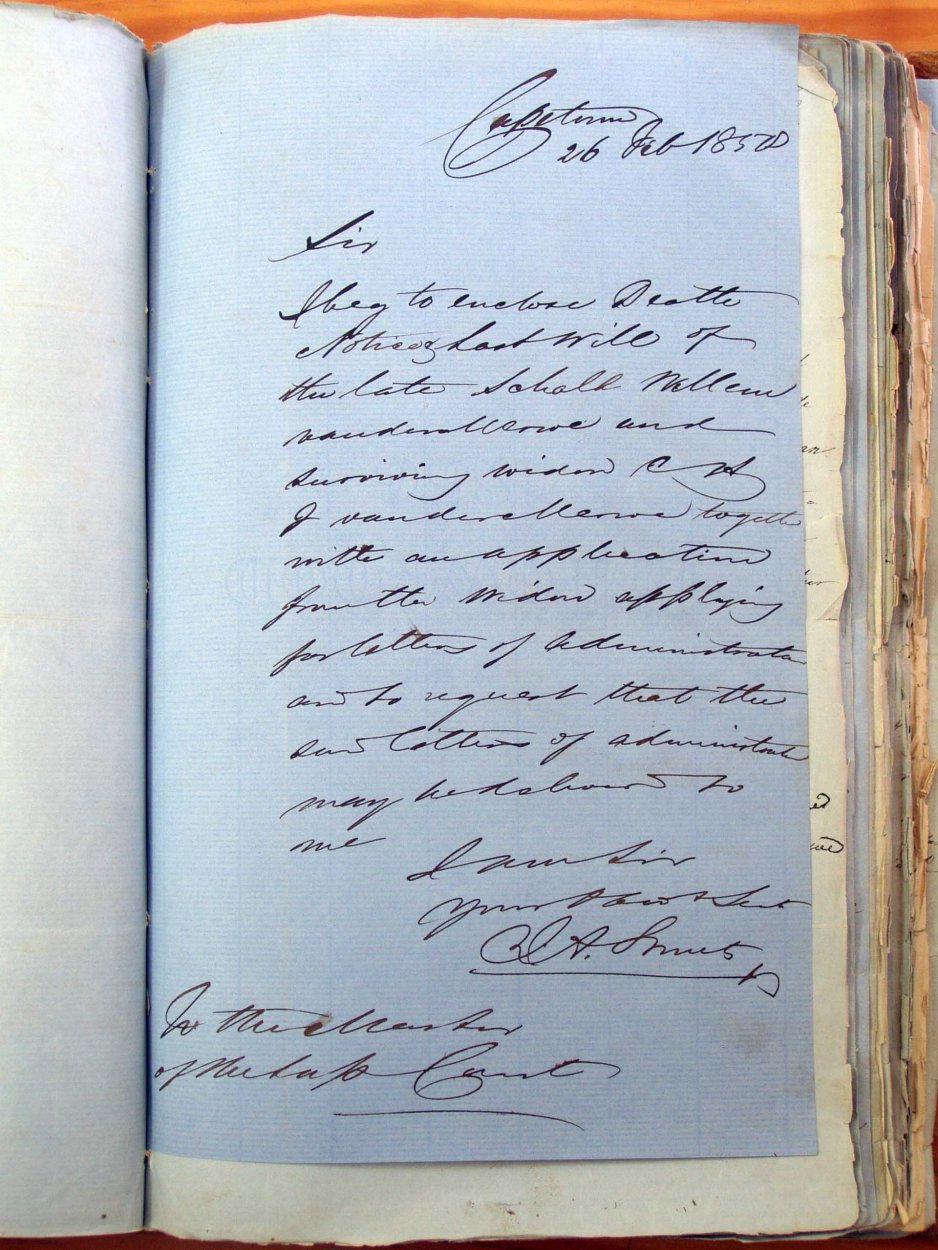 Capetown
26 Feb 1858
Sir
I beg to enclose Death
Notice & Last Will of
the late Schalk Willem
vanderMerwe and
surviving widow C
J vanderMerwe together
with an application
from the Widow applying
for letters of administration
and to request that the
said letters of administration
may be to
me
I am Sir
Your Obedt Servt
A. Smuts
To the Master
of the Sup Court